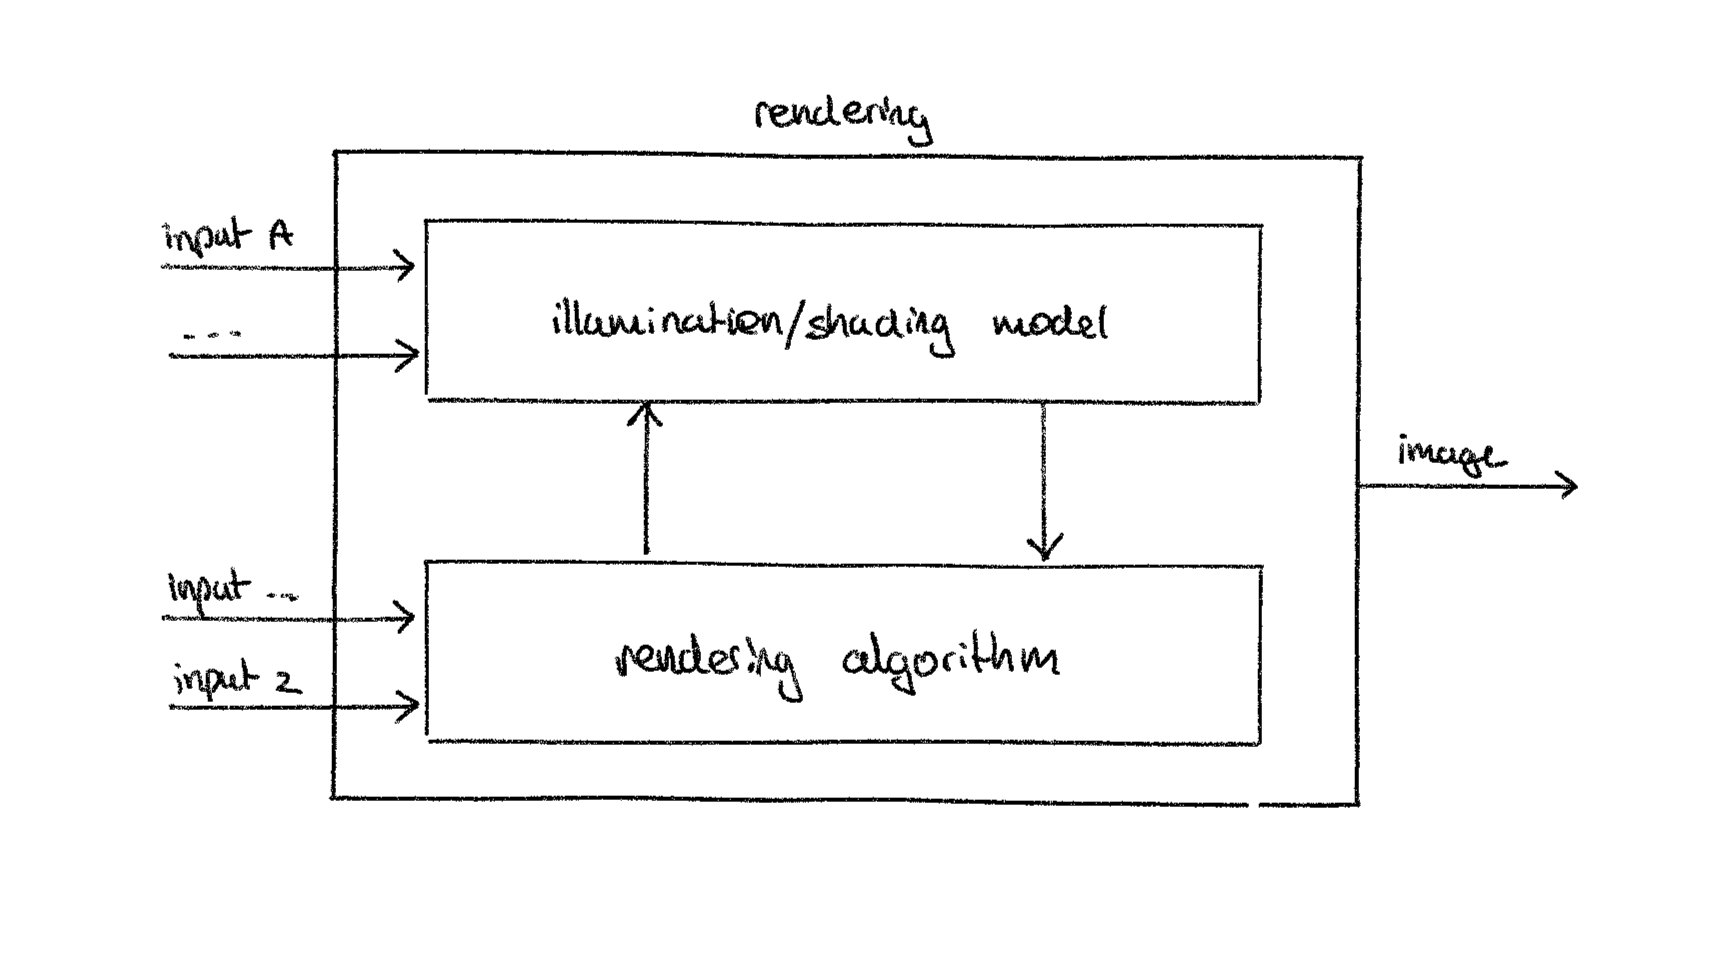 rendering
input A
...
illumination/shading model
image
input ...
input 2
rendering algorithm